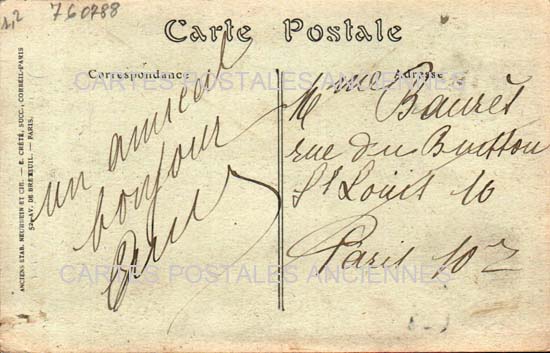 1,2
760788
Carte Postale
Correspondance
Adresse
CARTES POSTALES ANCIENNES
un amical
bonjour
Mme Baurès
rue du Buisson
St Louis 16
Paris 10e
CARTES POSTALES ANCIENNES
ANCIENS ETAB. NEURDEIN ET CIE. — E. CRÉTÉ, SUCC., CORBEIL-PARIS
52, AV. DE BRETEUIL. — PARIS.